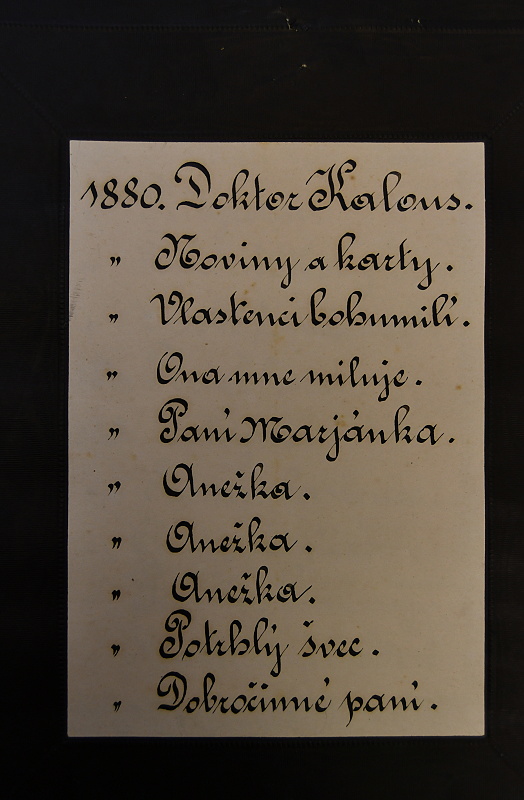 1880. Doktor Kalous.
" Noviny a karty.
" Vlastenci bohumilí.
" Ona mne miluje.
" Paní Marjánka.
" Anežka.
" Anežka.
" Anežka.
" Potrhlý švec.
" Dobročinné paní.